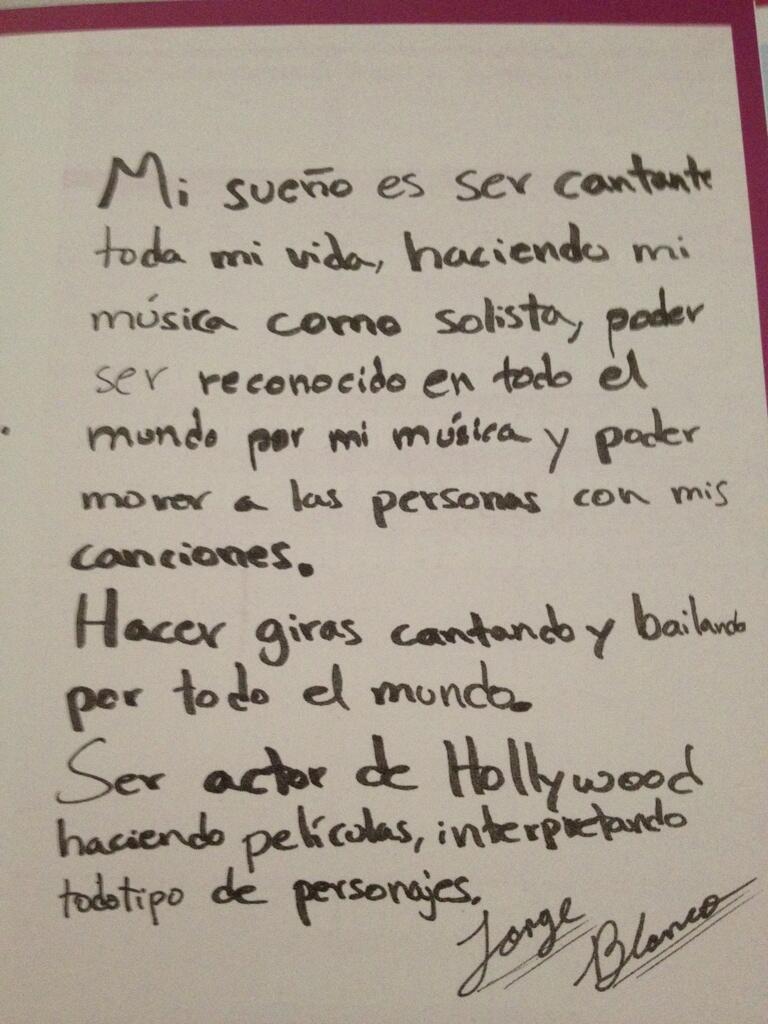 Mi sueño es ser cantante
toda mi vida, haciendo mi
música como solista, poder
ser reconocido en todo el
mundo por mi música y poder
mover a las personas con mis
canciones.
Hacer giras cantando y bailando
por todo el mundo.
Ser actor de Hollywood
haciendo películas, interpretando
todo tipo de personajes.
Jorge Blanco